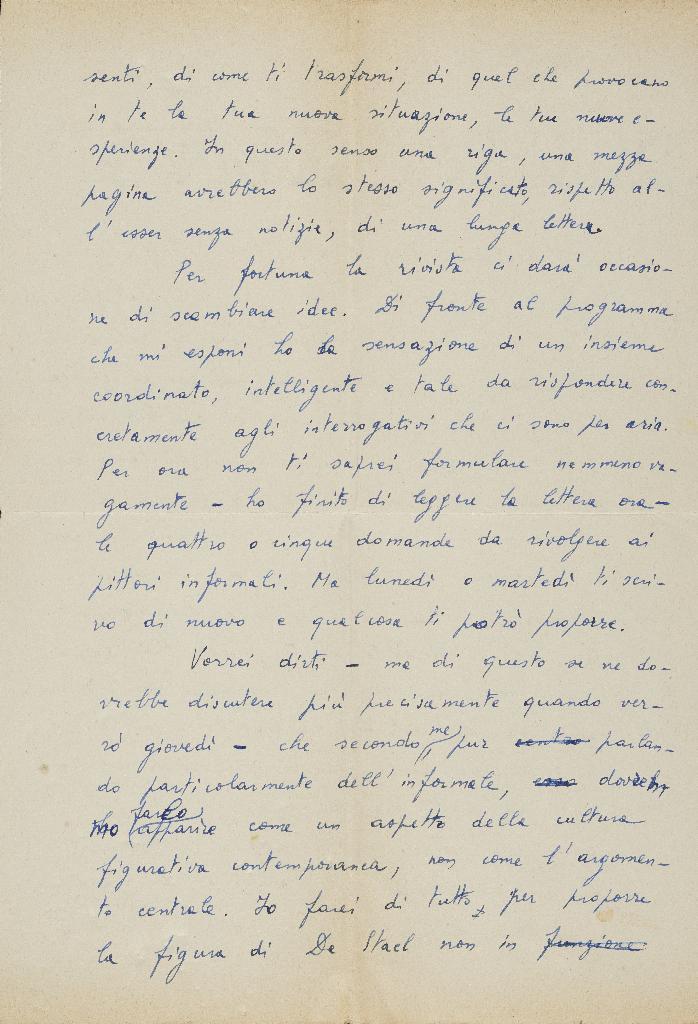 senti, di come ti trasformi, di quel che provocano
in te la tua nuova situazione, le tue nuove e-
sperienze. In questo senso una riga, una mezza
pagina avrebbero lo stesso significato, rispetto al-
l'esser senza notizie, di una lunga lettera.
Per fortuna la rivista ci darà occasio-
ne di scambiare idee. Di fronte al programma
che mi esponi ho la sensazione di un insieme
coordinato, intelligente e tale da rispondere con-
cretamente agli interrogativi che ci sono per aria.
Per ora non ti saprei formulare nemmeno va-
gamente – ho finito di leggere la lettera ora –
le quattro o cinque domande da rivolgere ai
pittori informali. Ma lunedì o martedì ti scri-
vo di nuovo e qualcosa ti potrò proporre.
Vorrei dirti – ma di questo se ne do-
vrebbe discutere più precisamente quando ver-
rò giovedì – che secondo me, pur parlan-
do particolarmente dell'informale, dovrem
mo farlo apparire come un aspetto della cultura
figurativa contemporanea, non come l'argomen-
to centrale. Io farei di tutto, per proporre
la figura di De Stael non in funzione